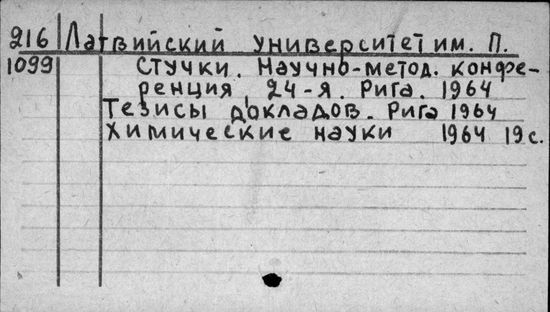 216 Латвийский университет им. П.
1099 Стучки. Научно-метод. конфе-
ренция, 24-я. Рига. 1964
Тезисы докладов. Рига 1964
Химические науки 1964 19 с.